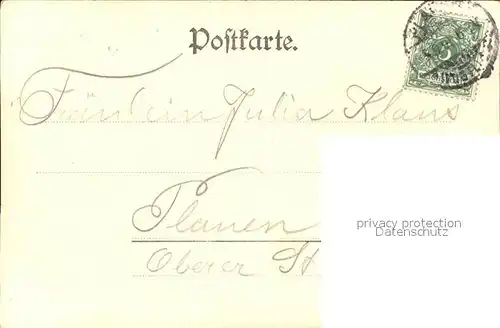 Postkarte.
Fräulein Julia Klaus
Plauen
Oberer St
privacy protection
Datenschutz